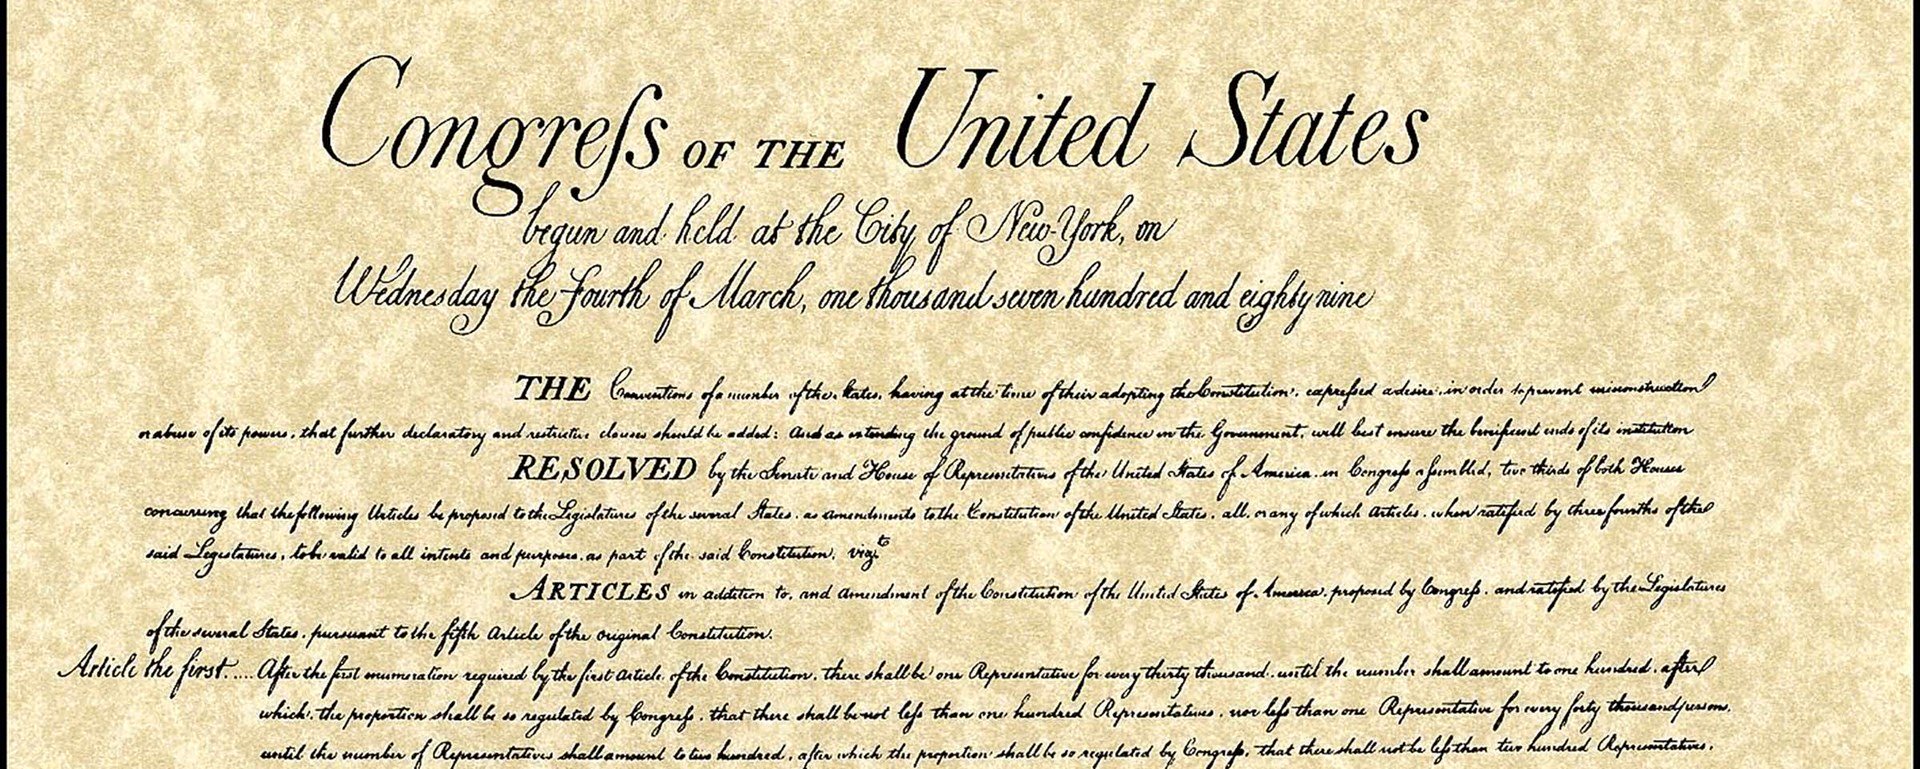 Congreſs OF THE United States
begun and held at the City of New-York, on
Wednesday the Fourth of March, one thousand seven hundred and eighty nine
THE Conventions of a number of the States, having at the time of their adopting the Constitution, expreſsed a desire, in order to prevent misconstruction
or abuse of its powers, that further declaratory and restrictive clauses should be added: And as extending the ground of public confidence in the Government, will best ensure the beneficent ends of its institution
RESOLVED by the Senate and House of Representatives of the United States of America, in Congreſs aſsembled, two thirds of both Houses
concurring that the following Articles be proposed to the Legislatures of the several States, as amendments to the Constitution of the United States, all, or any of which Articles, when ratified by three fourths of the
said Legislatures, to be valid to all intents and purposes, as part of the said Constitution, vizt
ARTICLES in addition to, and Amendment of the Constitution of the United States of America, proposed by Congreſs, and ratified by the Legislatures
of the several States, pursuant to the fifth Article of the original Constitution.
Article the first..... After the first enumeration required by the first Article of the Constitution, there shall be one Representative for every thirty thousand, until the number shall amount to one hundred, after
which, the proportion shall be so regulated by Congreſs, that there shall be not leſs than one hundred Representatives, nor leſs than one Representative for every forty thousand persons,
until the number of Representatives shall amount to two hundred, after which the proportion shall be so regulated by Congreſs, that there shall not be leſs than two hundred Representatives,